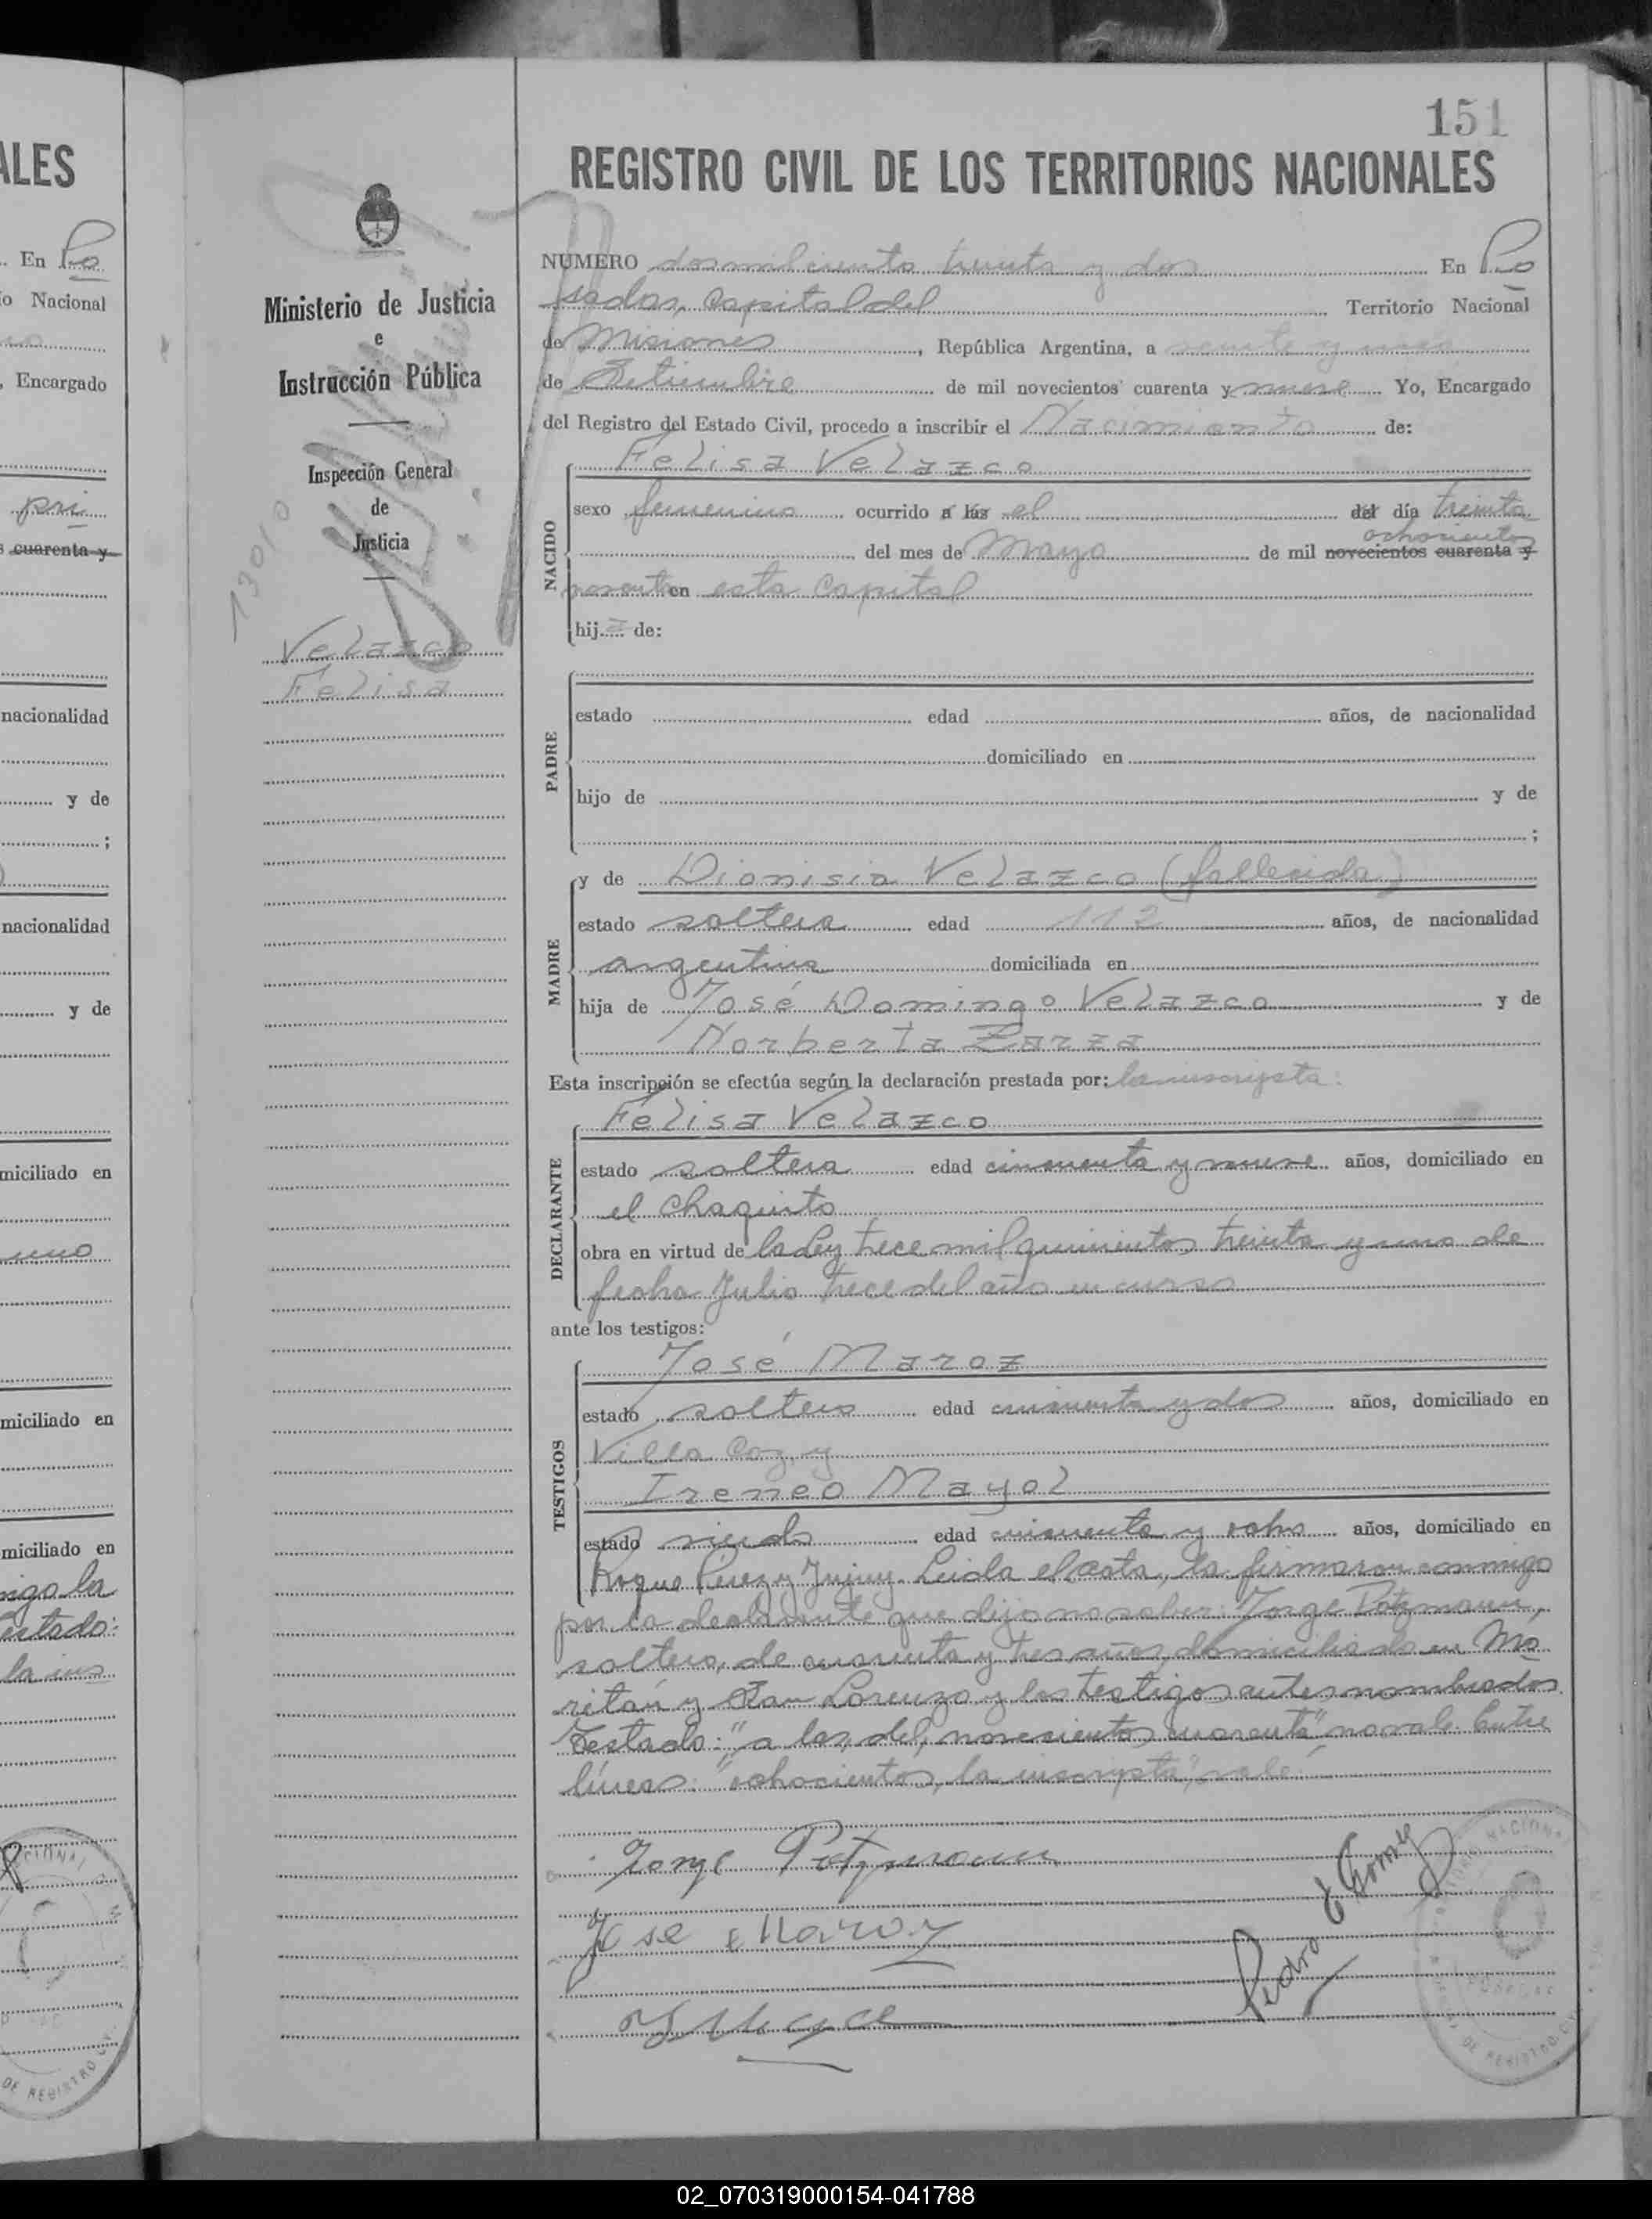 151
ALES
REGISTRO CIVIL DE LOS TERRITORIOS NACIONALES
. En Po
o Nacional
, Encargado
pri
s cuarenta y
nacionalidad
y de
;
nacionalidad
y de
miciliado en
uno
miciliado en
miciliado en
migo la
estado:
la ins
Ministerio de Justicia
e
Instrucción Pública
Inspección General
de
Justicia
13010
Velazco
Felisa
NUMERO dos mil ciento treinta y dos En Po
sadas, Capital del Territorio Nacional
de Misiones, República Argentina, a veinte y uno
de Setiembre de mil novecientos cuarenta y nueve Yo, Encargado
del Registro del Estado Civil, procedo a inscribir el Nacimiento de:
NACIDO
Felisa Velazco
sexo femenino ocurrido a las el del día treinta
ochocientos
del mes de Mayo de mil novecientos cuarenta y
noventa en esta Capital
hij a de:
PADRE
estado edad años, de nacionalidad
domiciliado en
hijo de y de
;
MADRE
y de Dionisia Velazco (fallecida)
estado soltera edad 112 años, de nacionalidad
argentina domiciliada en
hija de José Domingo Velazco y de
Norberta Zarza
Esta inscripción se efectúa según la declaración prestada por: la inscripta:
DECLARANTE
Felisa Velazco
estado soltera edad cincuenta y nueve años, domiciliado en
el Chaquito
obra en virtud de la Ley trece mil quinientos treinta y uno de
fecha Julio trece del año en curso
ante los testigos:
TESTIGOS
José Maroz
estado soltero edad cincuenta y dos años, domiciliado en
Villa
Ireneo Mayol
estado viudo edad cincuenta y ocho años, domiciliado en
Roque Pérez y Jujuy. Leida el acta, la firmaron conmigo
por la declarante que dijo no saber: Jorge Potzmann,
soltero, de cuarenta y tres años, domiciliado en Mo
ritán y San Lorenzo y los testigos antes nombrados
Testado: "a las, del, novecientos cuarenta" no vale. Entre
líneas: "ochocientos, la inscripta", vale.
Jorge Potzmann
Jose Maroz
Pedro Gomez
02_070319000154-041788